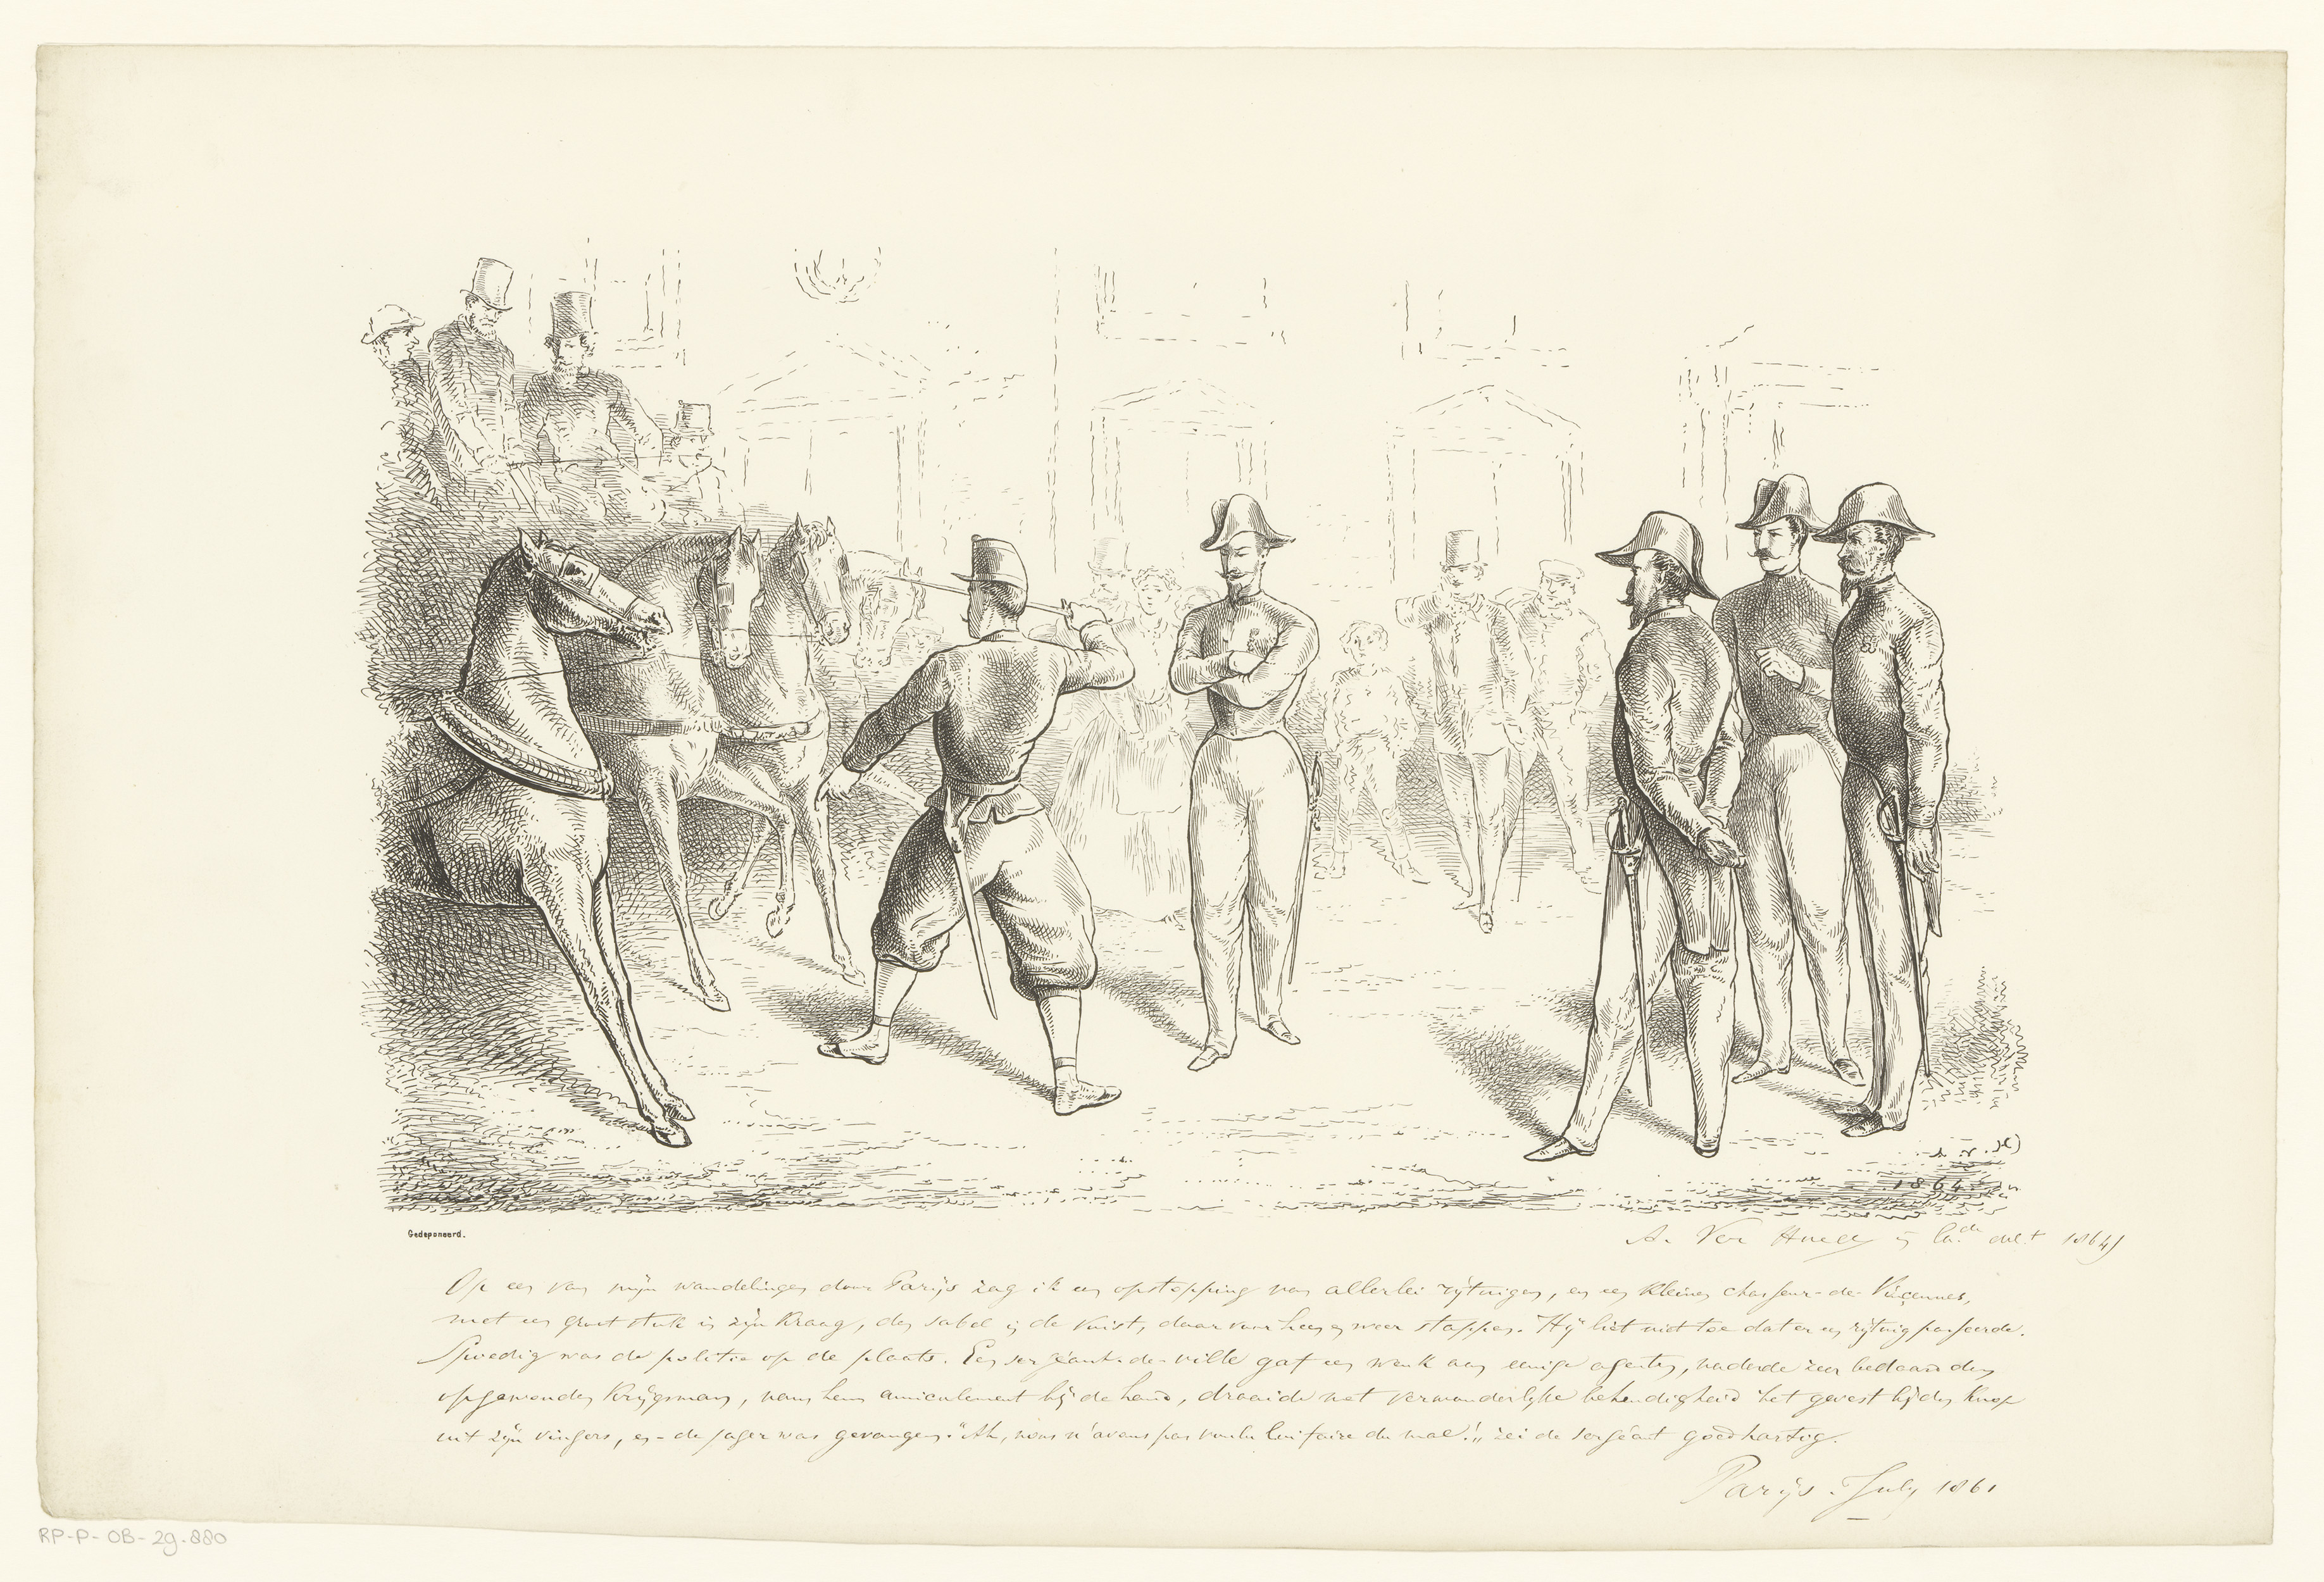 A. v. H
1864.
Gedeponeerd.
A. Ver Huell del.t 1864
Op een van mijn wandelingen door Parijs zag ik een opstopping van allerlei rijtuigen, en een kleinen chasseur-de-Vincennes,
met een groot stuk in zijn kraag, den sabel in de vuist, daar voor heen en weer stappen. Hij liet niet toe dat er een rijtuig passeerde.
Spoedig was de politie op de plaats. Een sergéant-de-ville gaf een wenk aan eenige agenten, naderde zeer bedaard den
opgewonden krijgsman, nam hem amicalement bij de hand, draaide met verwonderlijke behendigheid het gevest bij den knop
uit zijn vingers, en - de jager was gevangen. "Ah, nous n'avons pas voulu lui faire du mal!" zei de sergéant goedhartig.
Parijs. July 1861
RP-P-OB-29.880